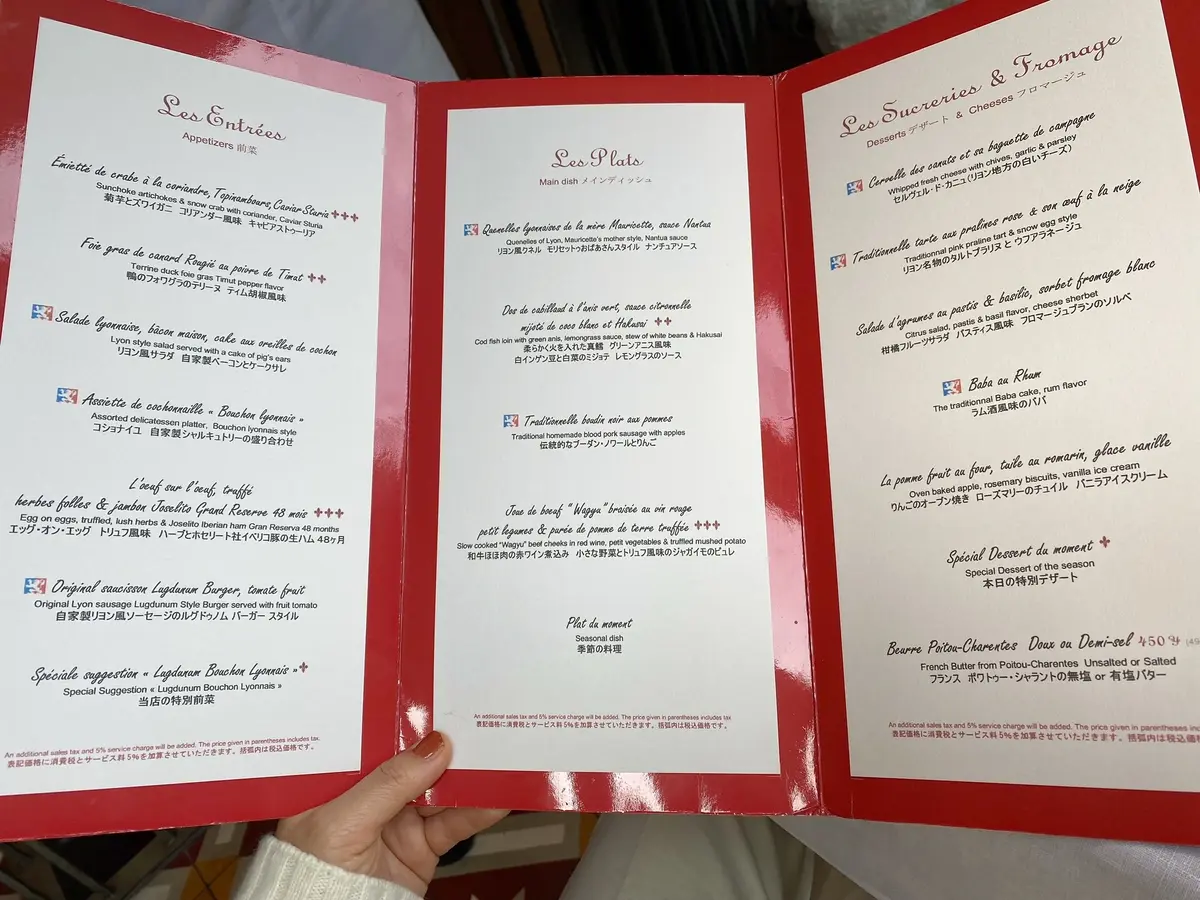 Les Entrées
Appetizers 前菜
Émietté de crabe à la coriandre, Topinambours, Caviar Sturia +++
Sunchoke artichokes & snow crab with coriander, Caviar Sturia
菊芋とズワイガニ コリアンダー風味 キャビアストゥーリア
Foie gras de canard Rougié au poivre de Timut ++
Terrine duck foie gras Timut pepper flavor
鴨のフォワグラのテリーヌ ティム胡椒風味
Salade lyonnaise, bâcon maison, cake aux oreilles de cochon
Lyon style salad served with a cake of pig's ears
リヨン風サラダ 自家製ベーコンとケークサレ
Assiette de cochonnaille « Bouchon lyonnais »
Assorted delicatessen platter, Bouchon lyonnais style
コショナイユ 自家製シャルキュトリーの盛り合わせ
L'oeuf sur l'oeuf, truffé
herbes folles & jambon Joselito Grand Reserve 48 mois +++
Egg on eggs, truffled, lush herbs & Joselito Iberian ham Gran Reserva 48 months
エッグ・オン・エッグ トリュフ風味 ハーブとホセリート社イベリコ豚の生ハム 48ヶ月
Original saucisson Lugdunum Burger, tomate fruit
Original Lyon sausage Lugdunum Style Burger served with fruit tomato
自家製リヨン風ソーセージのルグドゥノム バーガー スタイル
Spéciale suggestion « Lugdunum Bouchon Lyonnais » +
Special Suggestion « Lugdunum Bouchon Lyonnais »
当店の特別前菜
An additional sales tax and 5% service charge will be added. The price given in parentheses includes tax.
表記価格に消費税とサービス料5%を加算させていただきます。括弧内は税込価格です。
Les Plats
Main dish メインディッシュ
Quenelles lyonnaises de la mère Mauricette, sauce Nantua
Quenelles of Lyon, Mauricette's mother style, Nantua sauce
リヨン風クネル モリセットゥおばあさんスタイル ナンチュアソース
Dos de cabillaud à l'anis vert, sauce citronnelle
mijoté de coco blanc et Hakusai ++
Cod fish loin with green anis, lemongrass sauce, stew of white beans & Hakusai
柔らかく火を入れた真鱈 グリーンアニス風味
白インゲン豆と白菜のミジョテ レモングラスのソース
Traditionnelle boudin noir aux pommes
Traditional homemade blood pork sausage with apples
伝統的なブーダン・ノワールとりんご
Joue de boeuf "Wagyu" braisée au vin rouge
petit legumes & purée de pomme de terre truffée +++
Slow cooked "Wagyu" beef cheeks in red wine, petit vegetables & truffled mushed potato
和牛ほほ肉の赤ワイン煮込み 小さな野菜とトリュフ風味のジャガイモのピュレ
Plat du moment
Seasonal dish
季節の料理
An additional sales tax and 5% service charge will be added. The price given in parentheses includes tax
表記価格に消費税とサービス料5%を加算させていただきます。括弧内は税込価格です。
Les Sucreries & Fromage
Desserts デザート & Cheeses フロマージュ
Cervelle des canuts et sa baguette de campagne
Whipped fresh cheese with chives, garlic & parsley
セルヴェル・ド・カニュ(リヨン地方の白いチーズ)
Traditionnelle tarte aux pralines rose & son œuf à la neige
Traditionnal pink praline tart & snow egg style
リヨン名物のタルトプラリヌと ウフアラネージュ
Salade d'agrumes au pastis & basilic, sorbet fromage blanc
Citrus salad, pastis & basil flavor, cheese sherbet
柑橘フルーツサラダ パスティス風味 フロマージュブランのソルベ
Baba au Rhum
The traditionnal Baba cake, rum flavor
ラム酒風味のババ
La pomme fruit au four, tuile au romarin, glace vanille
Oven baked apple, rosemary biscuits, vanilla ice cream
りんごのオーブン焼き ローズマリーのチュイル バニラアイスクリーム
Spécial Dessert du moment +
Special Dessert of the season
本日の特別デザート
Beurre Poitou-Charentes Doux ou Demi-sel 450
French Butter from Poitou-Charentes Unsalted or Salted
フランス ポワトゥー・シャラントの無塩 or 有塩バター
An additional sales tax and 5% service charge will be added. The price given in parentheses
表記価格に消費税とサービス料5%を加算させていただきます。括弧内は税込価格